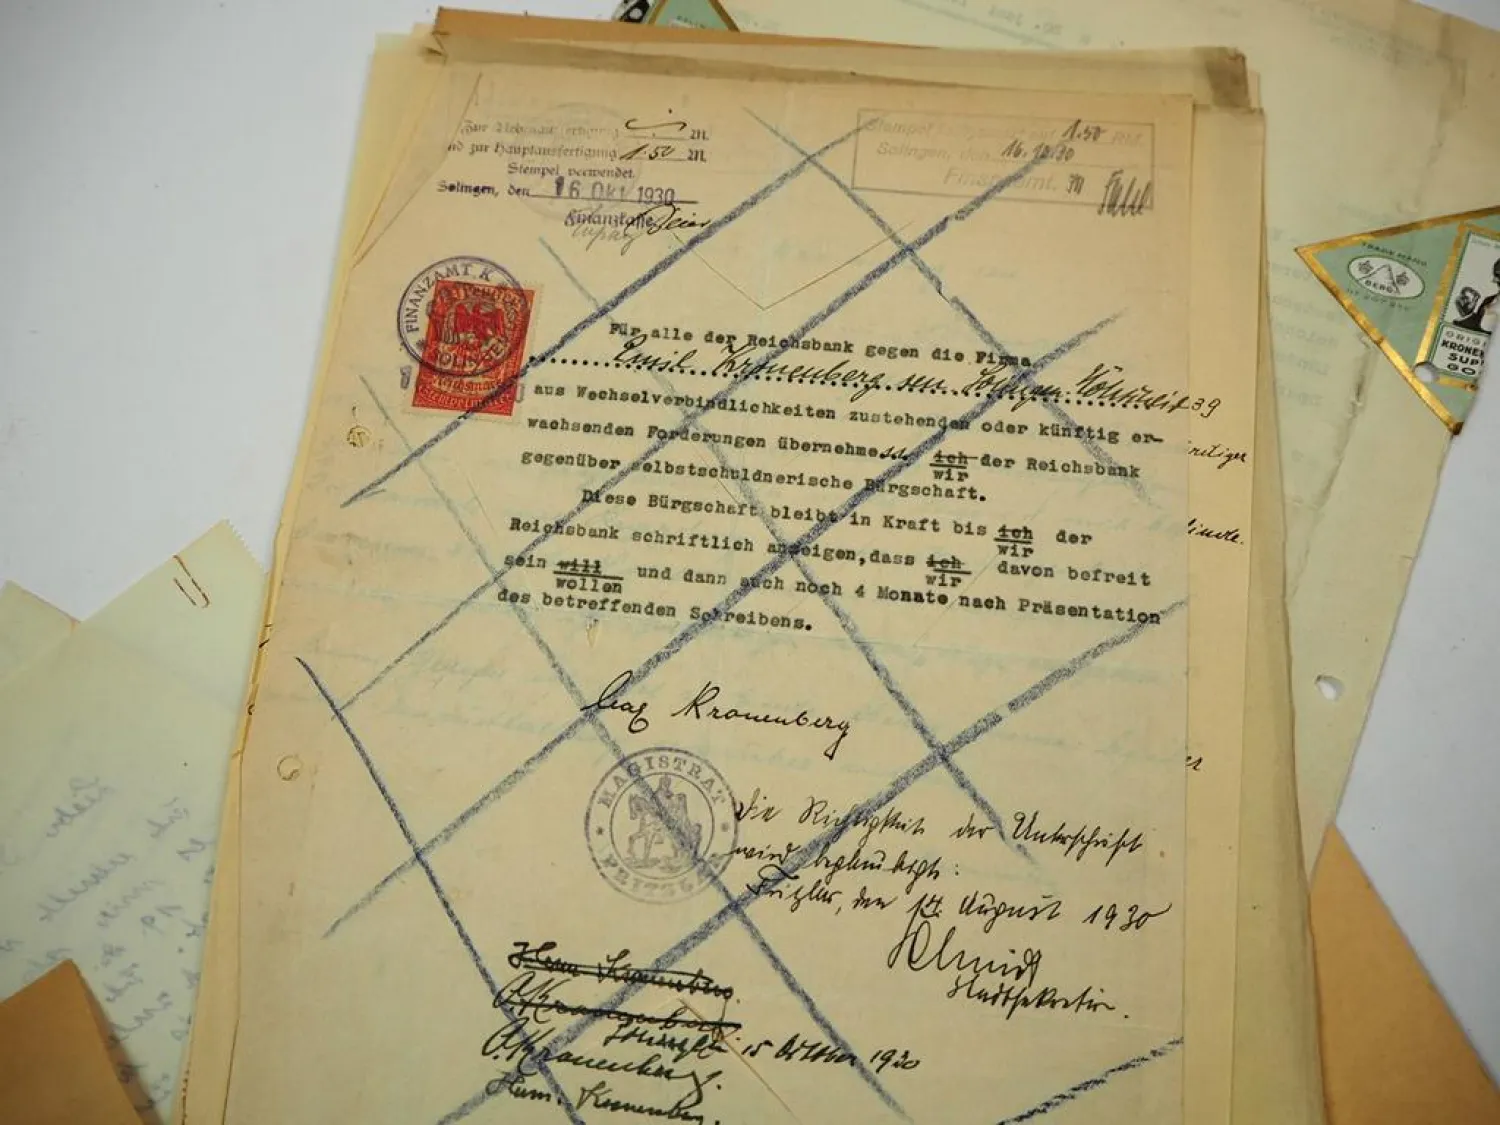 Zur Nebenausfertigung M.
nd zur Hauptausfertigung 1.50 M.
Stempel verwendet.
Solingen, den 16 Okt 1930
Finanzkasse
Stempel 1.50 RM.
Solingen, den 16.10.30
Finanzamt.
FINANZAMT
SOLINGEN
Reichsmark
Stempelmarke
Für alle der Reichsbank gegen die Firma
Emil Kronenberg sen Solingen 39
aus Wechselverbindlichkeiten zustehenden oder künftig er-
wachsenden Forderungen übernehmess. ich der Reichsbank
wir
gegenüber selbstschuldnerische Bürgschaft.
Diese Bürgschaft bleibt in Kraft bis ich der
wir
Reichsbank schriftlich anzeigen, dass ich davon befreit
wir
sein will und dann auch noch 4 Monate nach Präsentation
wollen
des betreffenden Schreibens.
Kronenberg
MAGISTRAT
FRITZLAR
Die Richtigkeit der Unterschrift
wird beglaubigt:
Fritzlar, den 14. August 1930
Schmidt
Stadtsekretär.
Herm Kronenberg.
O. Kronenberg
Solingen 15 Oktober 1930
O. Kronenberg.
Herm. Kronenberg.
TRADE MARK
BERG
KRONEN
SUP
GO